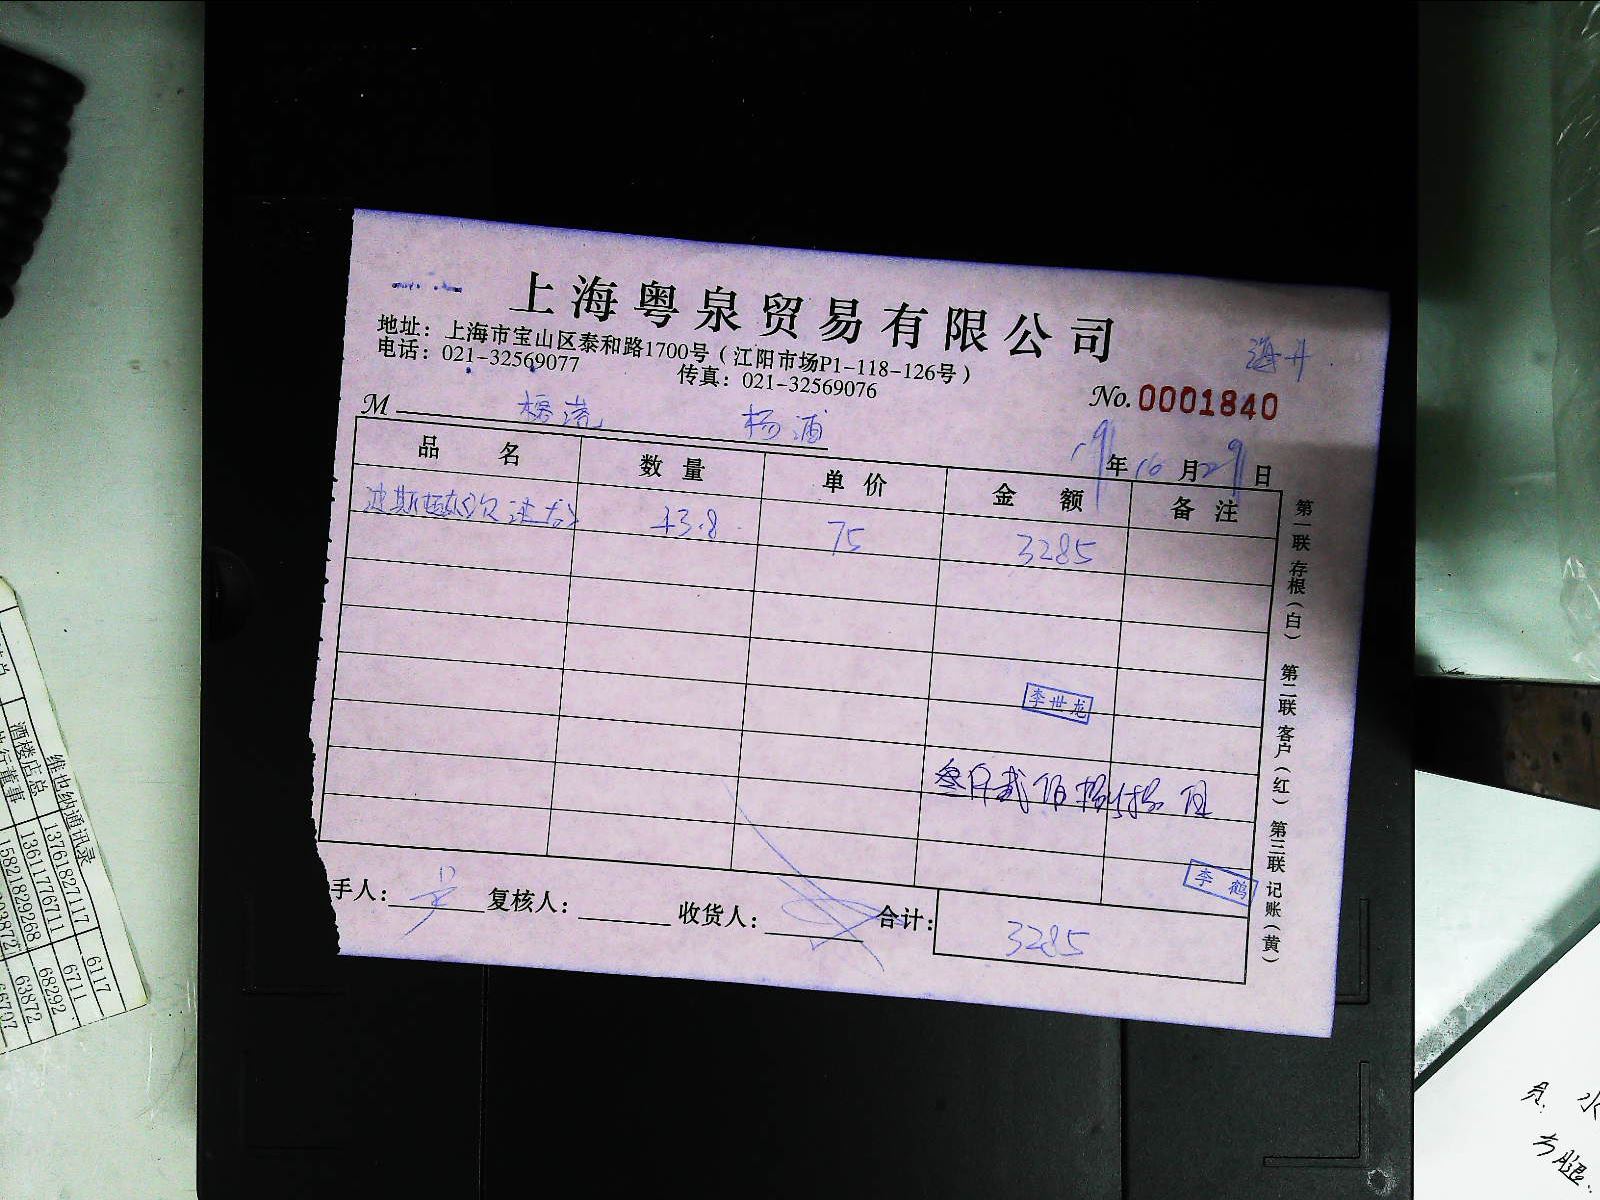 上海粤泉贸易有限公司
地址：上海市宝山区泰和路1700号（江阳市场P1-118-126号）
电话：021-32569077 传真：021-32569076
海升
No. 0001840
M 杨浦
19年10月29日
品名 数量 单价 金额 备注
波斯顿 43.8 75 3285
李世龙
叁仟贰佰捌拾捌 伍
李鹤
手人： 复核人： 收货人： 合计： 3285
第一联 存根（白） 第二联 客户（红） 第三联 记账（黄）
维也纳通讯录
酒楼店总 13761827117 6117
执行董事 13617776711 6711
15821829268 68292
63872